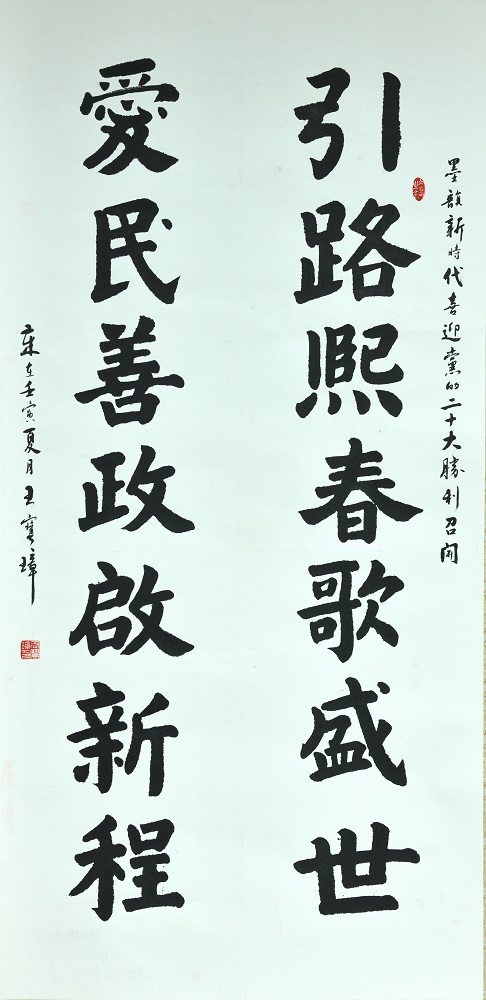 墨韻新時代喜迎黨的二十大勝利召開
引路熙春歌盛世
愛民善政啟新程
歲在壬寅夏月王寶璋